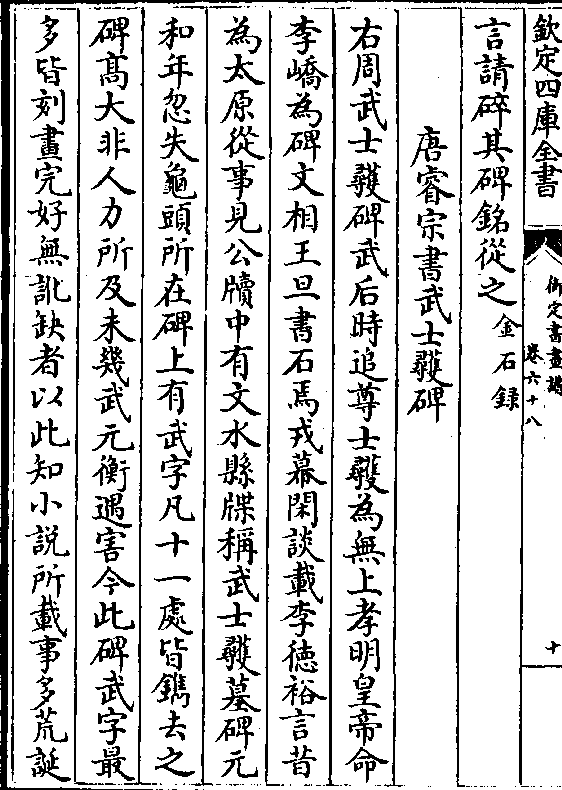 欽定四庫全書
御定書畫譜
卷六十八
十
言請碎其碑銘從之金石録
唐睿宗書武士彠碑
右周武士彠碑武后時追尊士彠為無上孝明皇帝命
李嶠為碑文相王旦書石焉戎幕閑談載李徳裕言昔
為太原從事見公牘中有文水縣牒稱武士彠墓碑元
和年忽失龜頭所在碑上有武字凡十一處皆鐫去之
碑髙大非人力所及未幾武元衡遇害今此碑武字最
多皆刻畫完好無訛缺者以此知小説所載事多荒誕